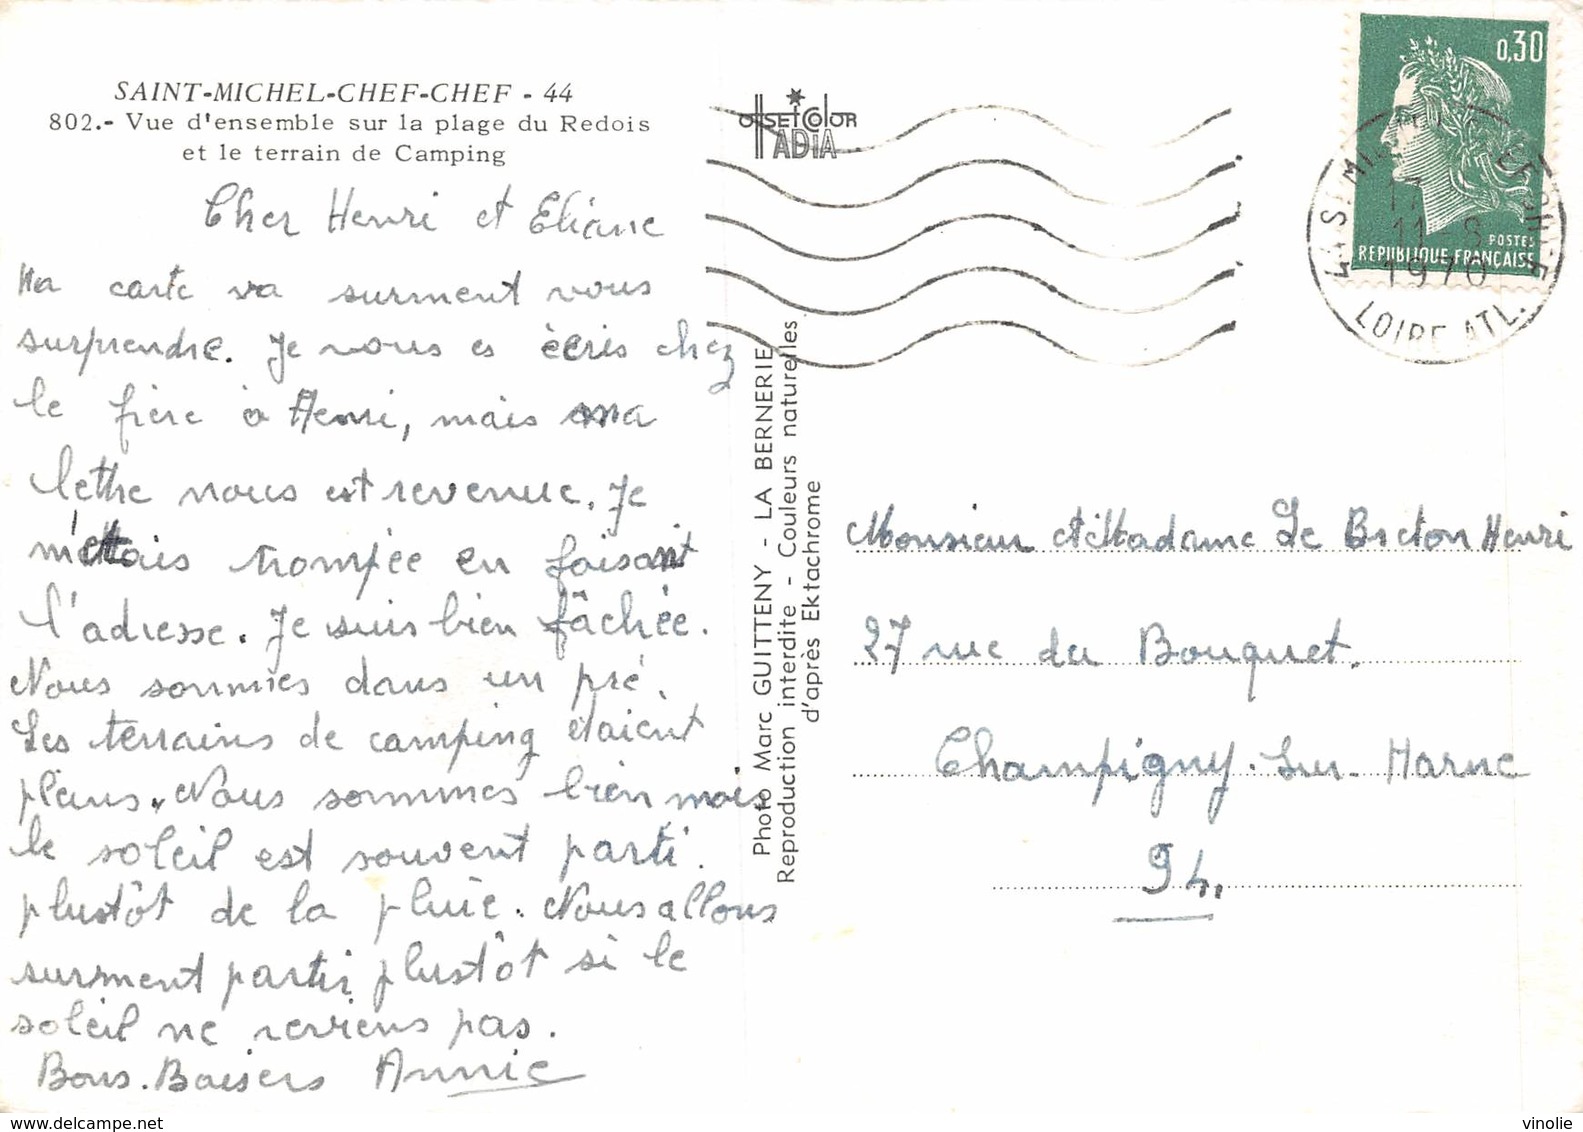 SAINT-MICHEL-CHEF-CHEF - 44
802.- Vue d'ensemble sur la plage du Redois
et le terrain de Camping
Cher Henri et Eliane
Ma carte va surment vous
surprendre. Je vous es écris chez
le frère à Henri, mais ma
lettre nous est revenue. Je
m'étais trompée en faisant
l'adresse. Je suis bien fâchée.
Nous sommes dans un pré.
Les terrains de camping étaient
pleins. Nous sommes bien mais
le soleil est souvent parti.
plustôt de la pluie. Nous allons
surment partir plustôt si le
soleil ne reviens pas.
Bons. Baisers Annie
OffsetColor
IADIA
Photo Marc GUITTENY - LA BERNERIE
Reproduction interdite - Couleurs naturelles
d'après Ektachrome
0,30
POSTES
REPUBLIQUE FRANÇAISE
17
11-8
1970
LOIRE ATL.
Monsieur et Madame Le Breton Henri
27 rue du Bouquet.
Champigny. sur. Marne
94.
www.delcampe.net
vinolie